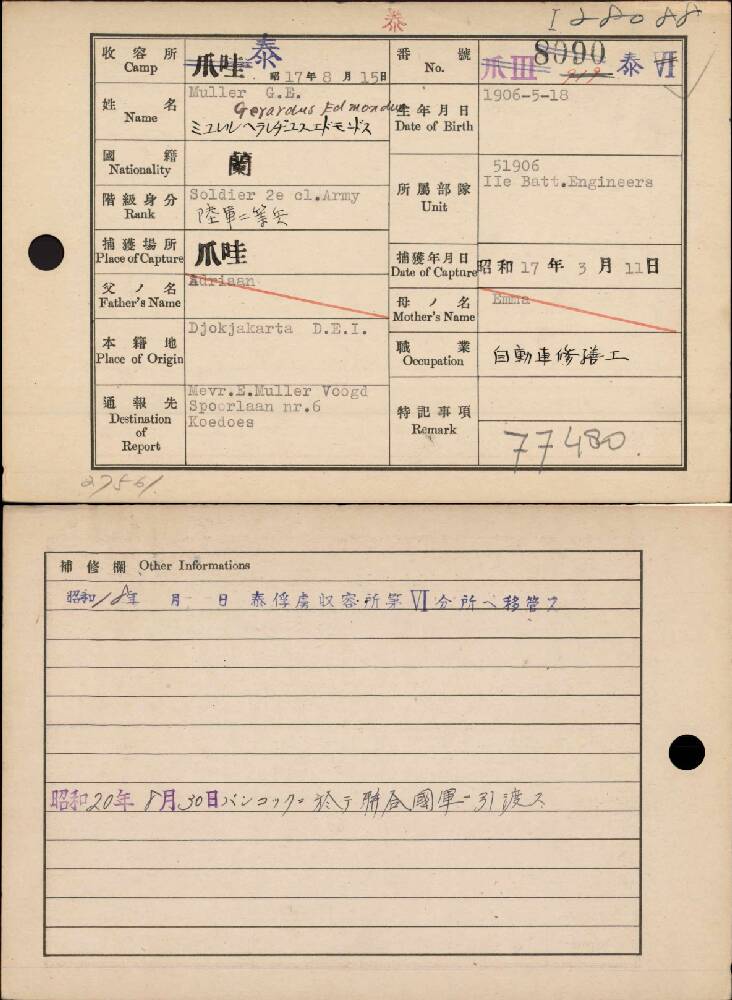 泰 I 28088
收容所 Camp 爪哇 泰 昭17年8月15日
番號 No. 爪III 8090 泰VI
姓名 Name Muller G.E.
Gerardus Edmondus
ミユレル ヘラルダユス エドモンドス
生年月日 Date of Birth 1906-5-18
國籍 Nationality 蘭
所屬部隊 Unit 51906
IIe Batt.Engineers
階級身分 Rank Soldier 2e cl.Army
陸軍二等兵
捕獲場所 Place of Capture 爪哇
捕獲年月日 Date of Capture 昭和17年3月11日
父ノ名 Father's Name Adriaan
母ノ名 Mother's Name Emma
本籍地 Place of Origin Djokjakarta D.E.I.
職業 Occupation 自動車修繕工
通報先 Destination of Report Mevr.E.Muller Voogd
Spoorlaan nr.6
Koedoes
特記事項 Remark 77480.
27561
補修欄 Other Informations
昭和18年 月 日 泰俘虜収容所第VI分所ヘ移管ス
昭和20年8月30日バンコックニ於テ聯合國軍ニ引渡ス